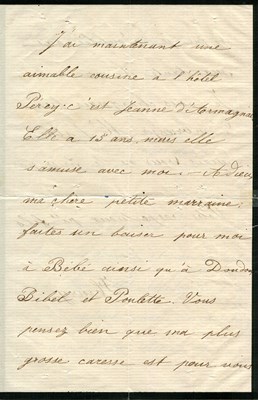 J'ai maintenant une
aimable cousine à l'hôtel
Percy: c'est Jeanne d'Armagnac
Elle a 15 ans, mais elle
s'amuse avec moi. – Adieu
me chère petite marraine,
faites un baiser pour moi
à Bébé aussi qu'à Doudou
Bibel et Poulette. Vous
pensez bien que ma plus
grosse caresse est pour vous